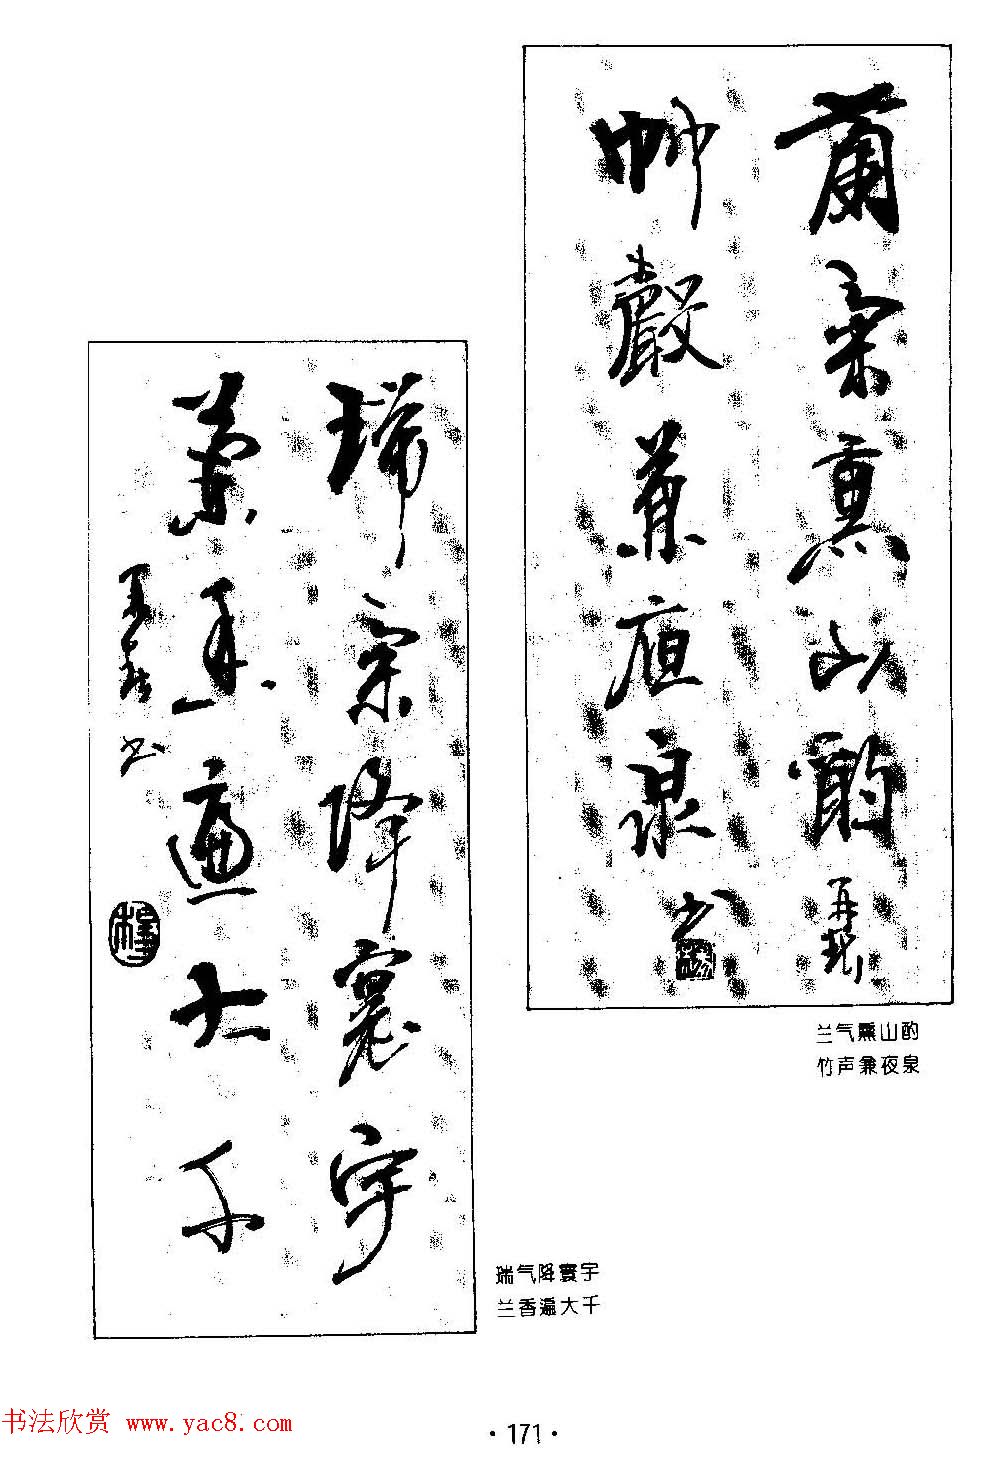 蘭氣熏山酌
竹聲兼夜泉
书
兰气熏山酌
竹声兼夜泉
瑞氣降寰宇
蘭香遍大千
书
瑞气降寰宇
兰香遍大千
书法欣赏 www.yac8.com
·171·